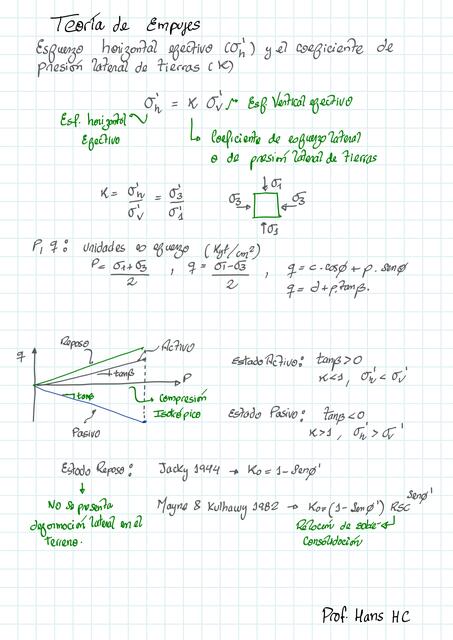 Teoría de Empujes
Esfuerzo horizontal efectivo (σh') y el coeficiente de
presión lateral de tierras (K)
σh' = K σv' Esf Vertical efectivo
Esf. horizontal
Efectivo
Coeficiente de esfuerzo lateral
o de presión lateral de tierras
K = σh'/σv' = σ3'/σ1'
σ1
σ3 σ3
σ1
P, q: unidades ∞ esfuerzo (Kgf/cm²)
P = σ1+σ3/2 , q = σ1-σ3/2 , q = c·cosφ + p·senφ
q = d + p·tanβ.
q
Reposo
Activo
tanβ
P
tanβ
Compresión
Isotrópico
Pasivo
Estado Activo: tanβ>0
K<1, σh' < σv'
Estado Pasivo: tanβ<0
K>1, σh' > σv'
Estado Reposo: Jacky 1944 → Ko = 1-senφ'
No se presenta
deformación lateral en el
terreno.
Mayne & Kulhawy 1982 → Ko = (1-senφ') RSC^senφ'
Relación de sobre
Consolidación
Prof. Hans HC